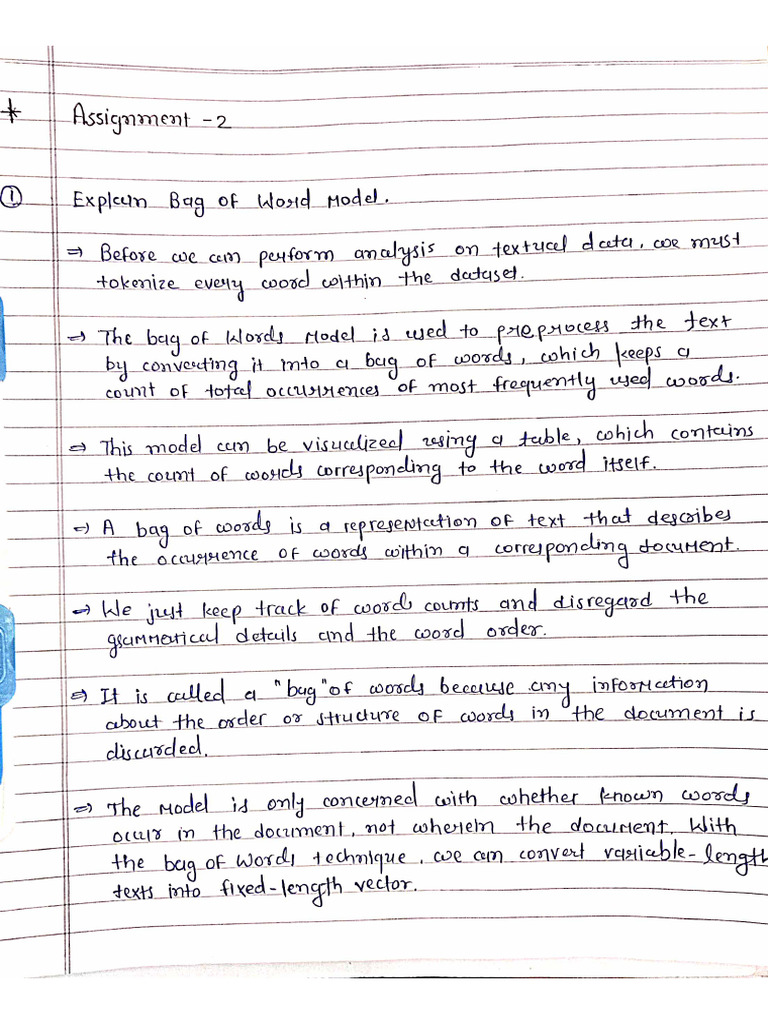 * Assignment - 2
① Explain Bag of Word Model.
⇒ Before we can perform analysis on textual data, we must
tokenize every word within the dataset.
⇒ The bag of Words Model is used to preprocess the text
by converting it into a bag of words, which keeps a
count of total occurrences of most frequently used words.
⇒ This model can be visualized using a table, which contains
the count of words corresponding to the word itself.
⇒ A bag of words is a representation of text that describes
the occurrence of words within a corresponding document.
⇒ We just keep track of words counts and disregard the
grammatical details and the word order.
⇒ It is called a "bag" of words because any information
about the order or structure of words in the document is
discarded.
⇒ The Model is only concerned with whether known words
occur in the document, not wherein the document. With
the bag of Words technique, we can convert variable-length
texts into fixed-length vector.